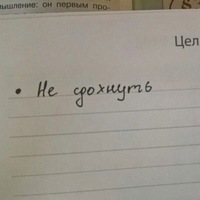 мышление: он первым про-
Цел
• Не сдохнуть